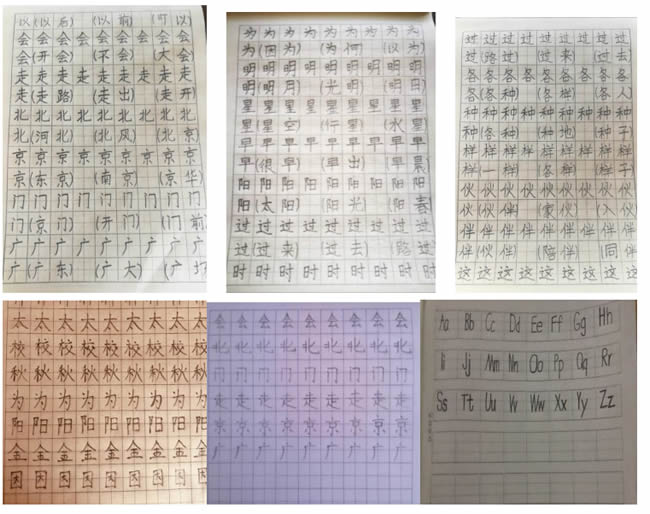 以(以后) (以前) (可以)
会会会会会会会会会
会(开会) (不会) (大会)
走走走走走走走走走
走(走路) (走出) (走开)
北北北北北北北北北
北(河北) (北风) (北京)
京京京京京京京京京
京(东京) (南京) (京华)
门门门门门门门门门
门(京门) (开门) (门前)
广广广广广广广广广
广(广东) (广大) (广
为为为为为为为为为
为(因为) (为何) (以为)
明明明明明明明明明
明(明月) (光明) (明日)
星星星星星星星星星
星(星空) (行星) (水星)
早早早早早早早早早
早(很早) (早出) (早晨)
阳阳阳阳阳阳阳阳阳
阳(太阳) (阳光) (阳春)
过过过过过过过过过
过(过来) (过去) (路过)
时时时时时时时时时
过过过过过过过过过
过(路过) (过来) (过去)
各各各各各各各各各
各(各种) (各样) (各人)
种种种种种种种种种
种(各种) (种地) (种子)
样样样样样样样样样
样(一样) (各样) (样子)
伙伙伙伙伙伙伙伙伙
伙(伙伴) (家伙) (入伙)
伴伴伴伴伴伴伴伴伴
伴(伙伴) (陪伴) (同伴)
这这这这这这这这这
太太太太太太太太
校校校校校校校校
秋秋秋秋秋秋秋秋
为为为为为为为为
阳阳阳阳阳阳阳阳
金金金金金金金金
因因因因因因因因
会会会会会会会会会
北北北北北北北北北
门门门门门门门门门
走走走走走走走走走
京京京京京京京京京
广广广广广广广广广
Aa Bb Cc Dd Ee Ff Gg Hh
Ii Jj Mm Nn Oo Pp Qq Rr
Ss Tt Uu Vv Ww Xx Yy Zz